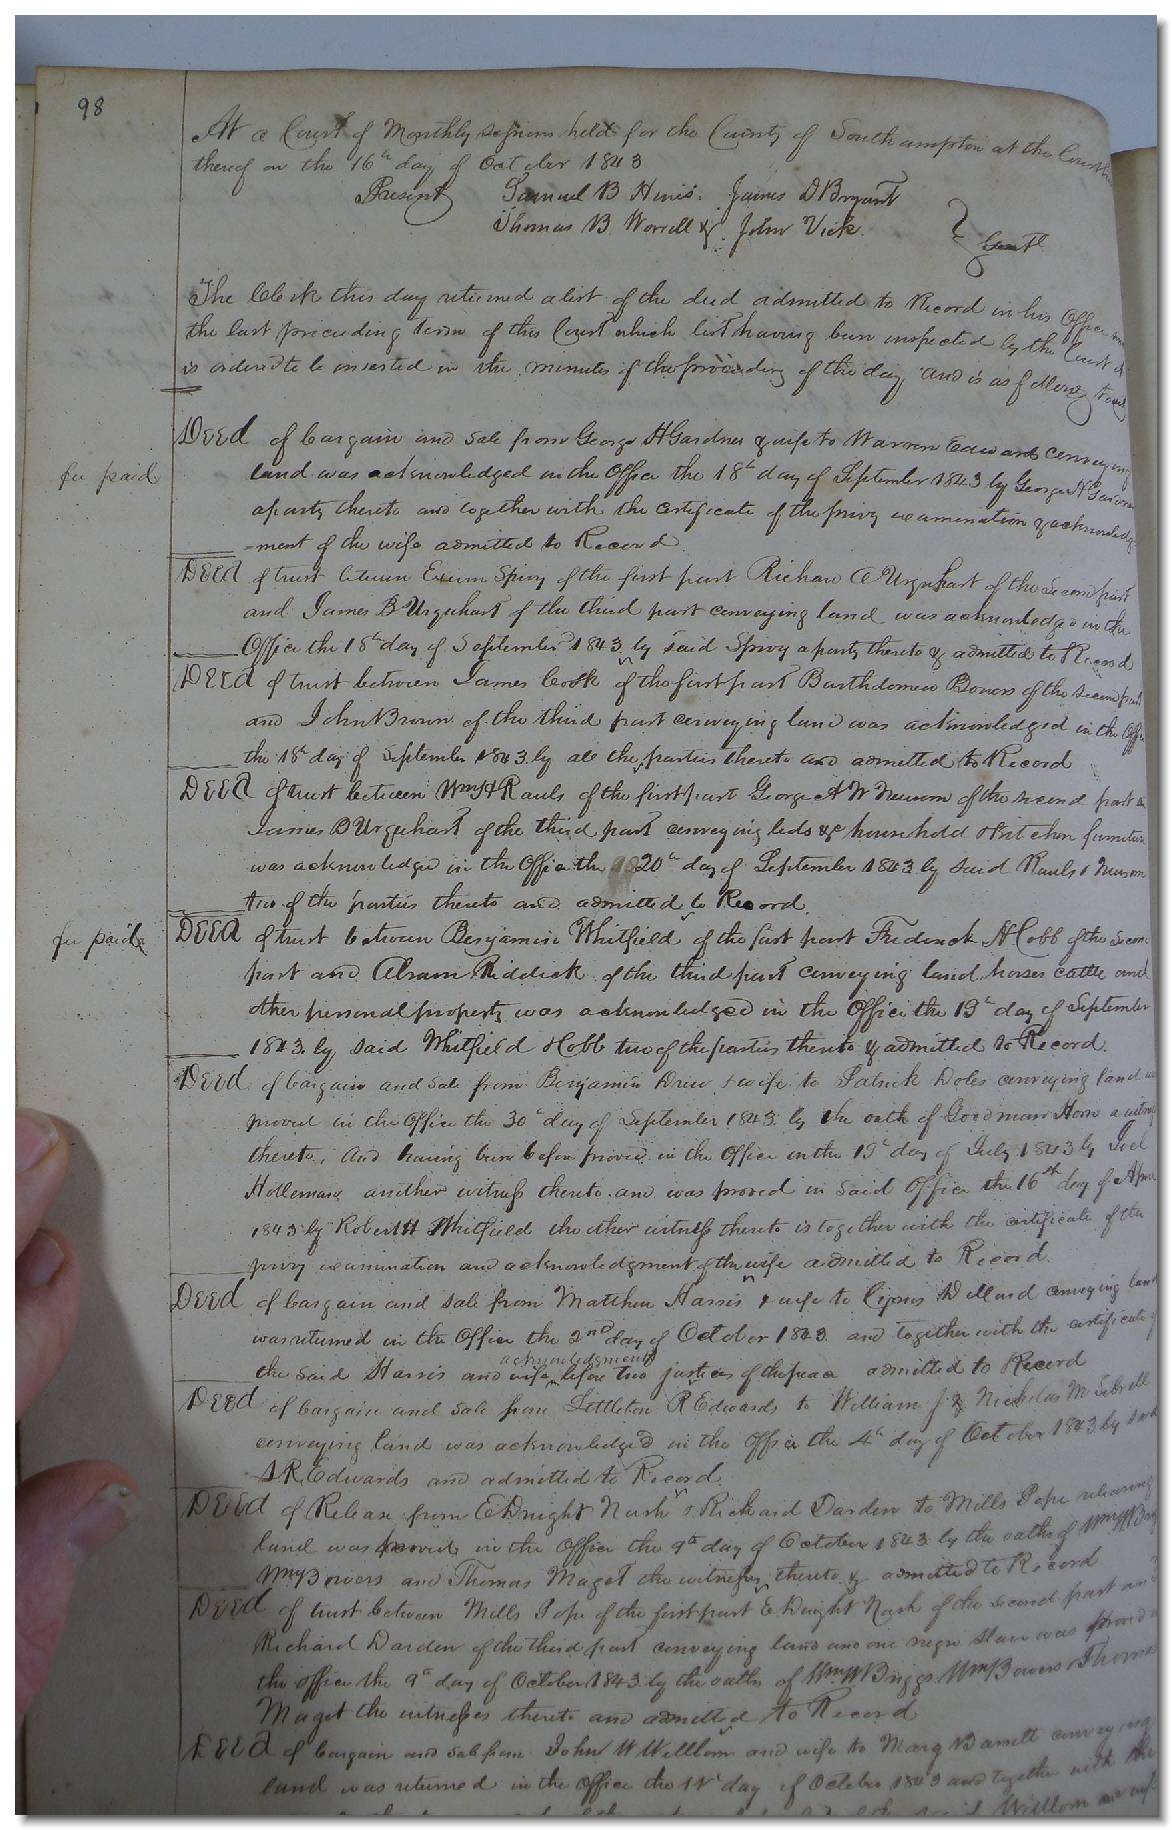 98
At a Court of Monthly sessions held for the County of Southampton at the
thereof on the 16th day of October 1843
Present Samuel B Hines. James D Bryant
Thomas B Worrell & John Vick
Gentl
The Clerk this day returned a list of the deed admitted to Record in his Office
the last preceeding term of this Court which list having been inspected by the Court
is ordered to be inserted in the minutes of the proceeding of the day and is as follows
Deed of bargain and sale from George H Gardner & wife to Warren Edwards conveying
fee paid
land was acknowledged in the Office the 18th day of September 1843 by George H Gardner
a party thereto and together with the certificate of the privy examination & acknowledg
-ment of the wife admitted to Record
Deed of trust between Exum Spivy of the first part Richard A Urquhart of the second part
and James B Urquhart of the third part conveying land was acknowledged in the
Office the 18th day of September 1843 by said Spivy a party thereto & admitted to Record
Deed of trust between James Cook of the first part Barthdomew Bowers of the second part
and John Brown of the third part conveying land was acknowledged in the Office
the 18th day of September 1843 by all the parties thereto and admitted to Record
Deed of trust between Wm H Rauls of the first part George A W Newsom of the second part
James B Urquhart of the third part conveying beds & household & kitchen furniture
was acknowledged in the Office the 20th day of September 1843 by said Rauls & Newsom
two of the parties thereto and admitted to Record.
Deed of trust between Benjamin Whitfield of the first part Frederick H Cobb of the
fee paid
part and Abram Riddick of the third part conveying land horses cattle and
other personal property was acknowledged in the Office the 19th day of September
1843 by said Whitfield & Cobb two of the parties thereto & admitted to Record.
Deed of bargain and sale from Benjamin Drew & wife to Patrick Doles conveying land
proved in the Office the 30th day of September 1843 by the oath of Goodman Horn a
thereto, And having been before proved in the Office in the 19th day of July 1843 by Joel
Holleman another witness thereto and was proved in said Office the 16th day of
1843 by Robert H Whitfield the other witness thereto is together with the certificate of the
privy examination and acknowledgment of the wife admitted to Record
Deed of bargain and sale from Matthew Harris & wife to Dillard conveying land
was returned in the Office the 2nd day of October 1843 and together with the certificate of
acknowledgment
the said Harris and wife before two justices of the peace admitted to Record
Deed of bargain and sale from Littleton R Edwards to William J & Nicholas M Sebrell
conveying land was acknowledged in the Office the 4th day of October 1843 by said
L R Edwards and admitted to Record.
Deed of Release from E Dwight Nash & Richard Darden to Mills Pope releasing
land was proved in the Office the 9th day of October 1843 by the oaths of Wm W
Wm Bowers and Thomas Maget the witnesses thereto & admitted to Record
Deed of trust between Mills Pope of the first part E Dwight Nash of the second part and
Richard Darden of the third part conveying land and one negro slave was proved
the office the 9th day of October 1843 by the oaths of Wm W Briggs Wm Bowers & Thomas
Maget the witnesses thereto and admitted to Record
Deed of bargain and sale from John W Wellloms and wife to Marg Barnett conveying
land was returned in the Office the day of October 1843 and together with the